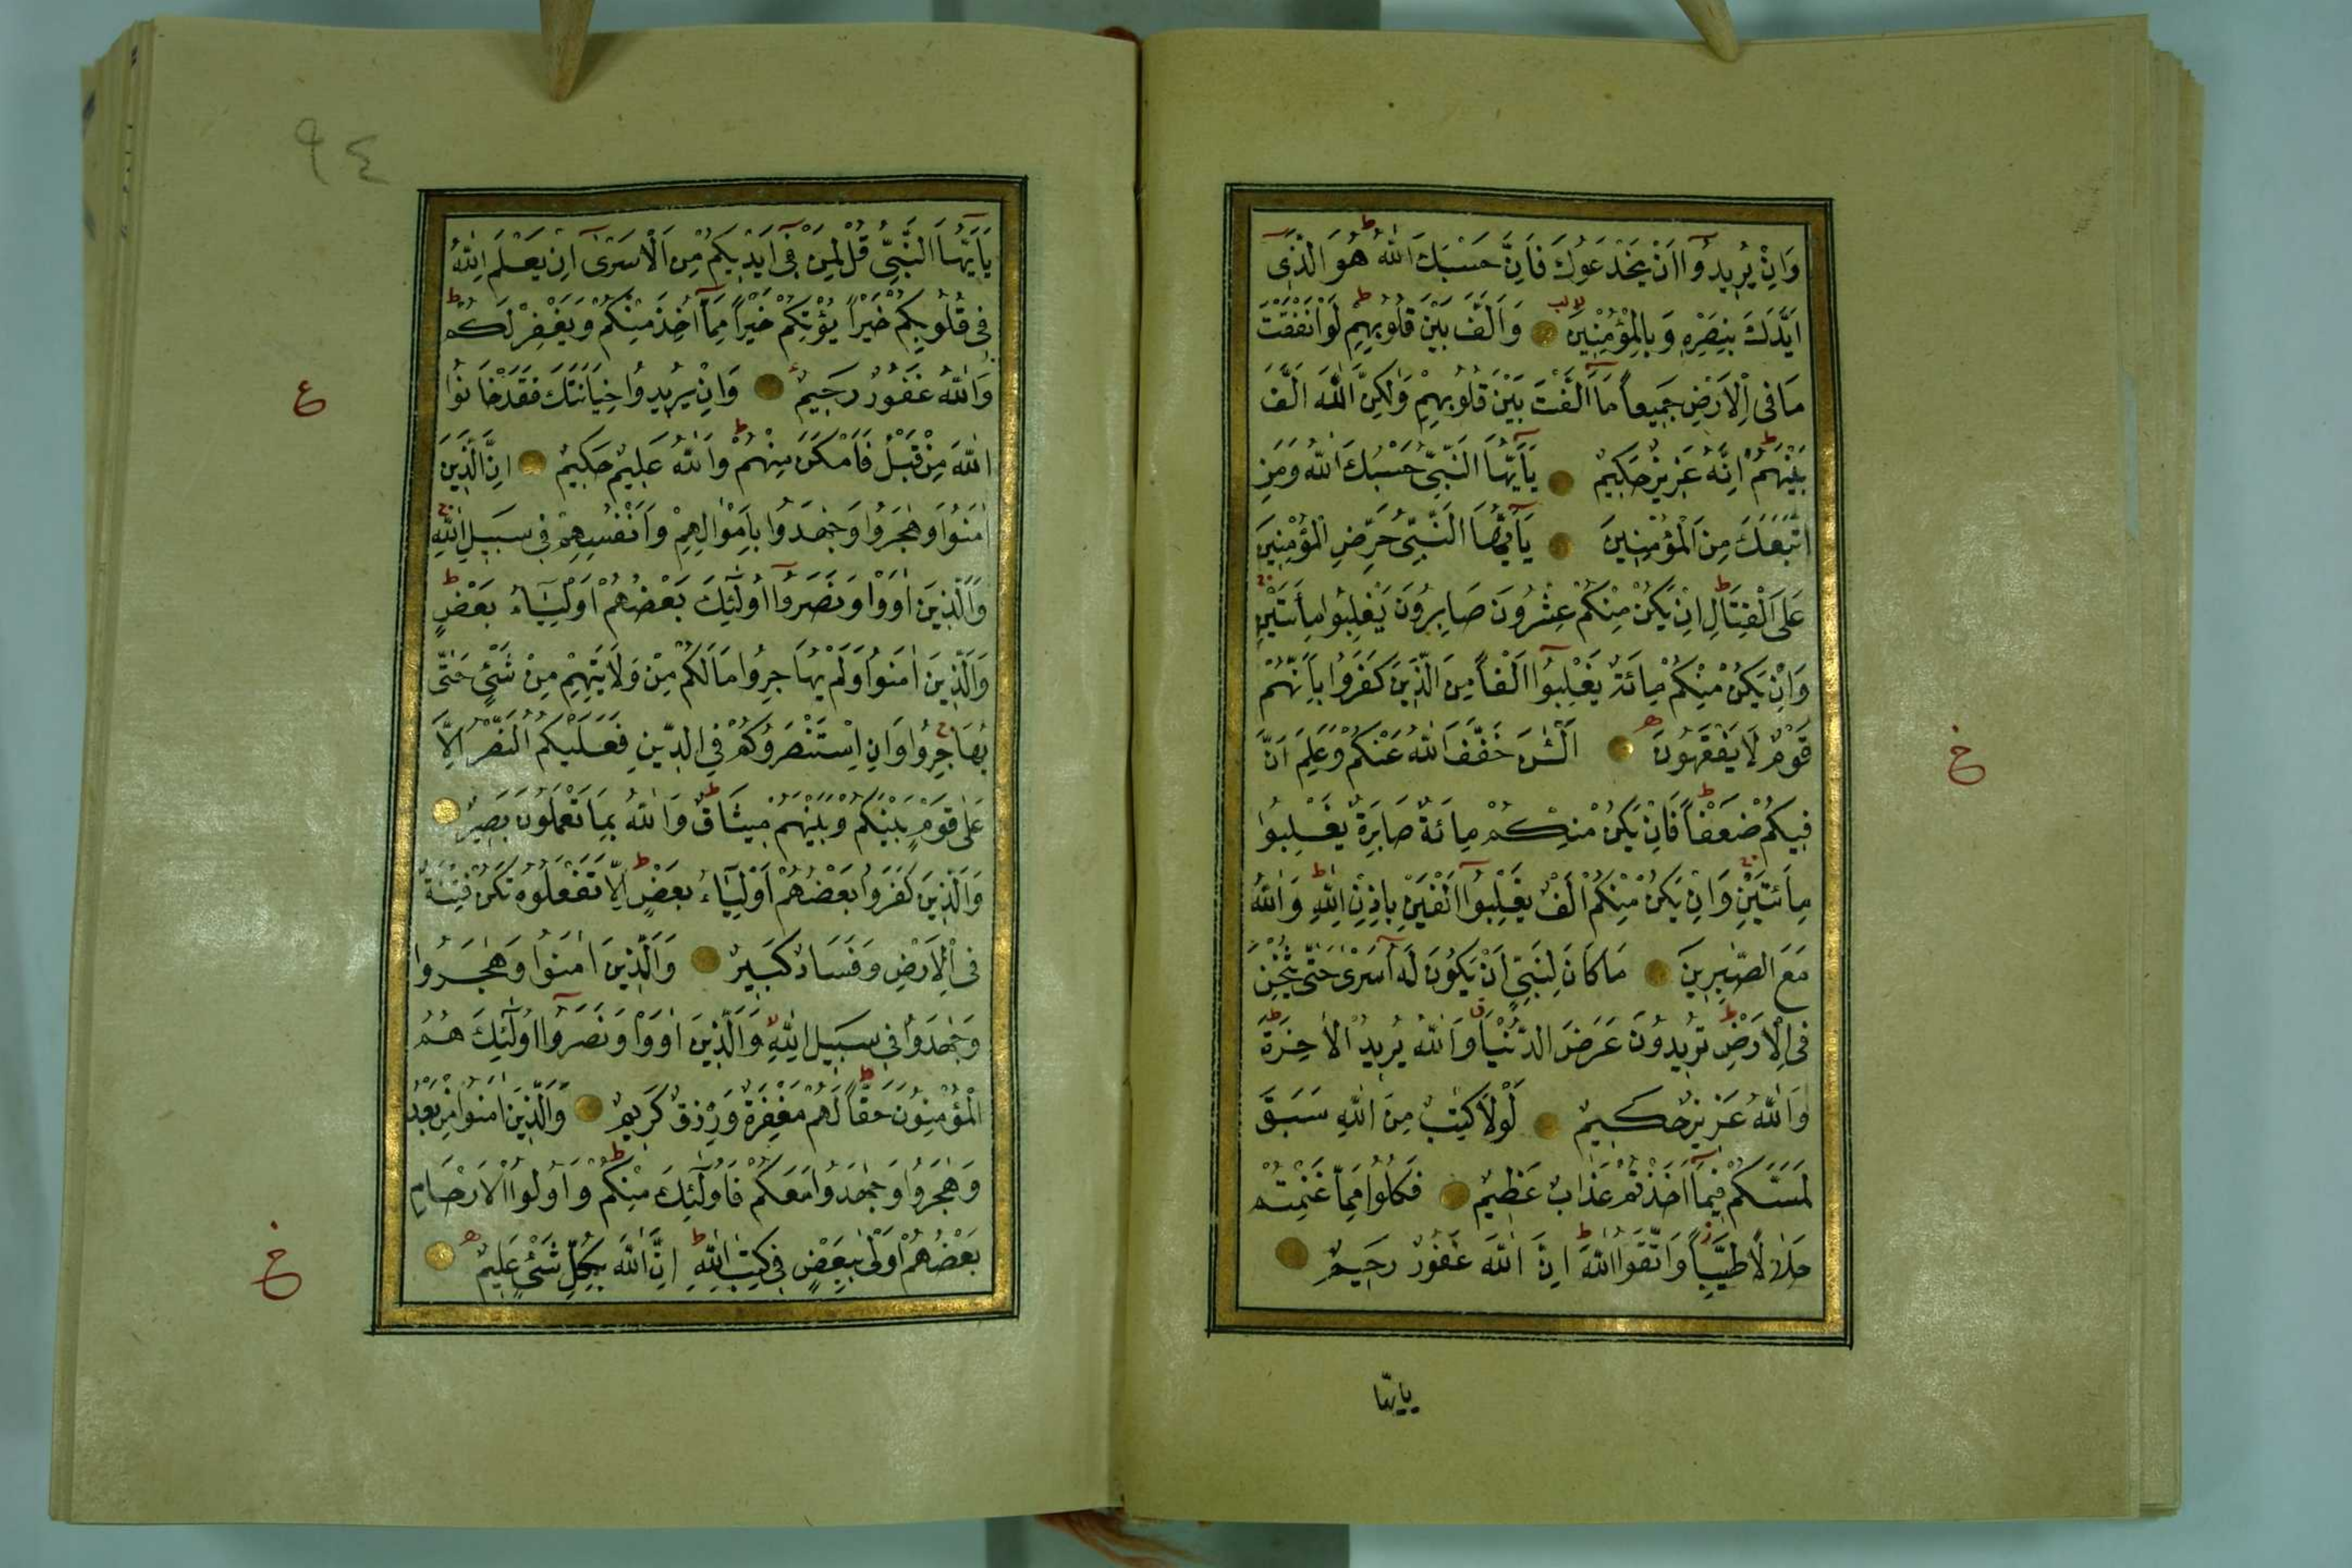 وَاِنْ يُرِيدُوٓا اَنْ يَخْدَعُوكَ فَاِنَّ حَسْبَكَ اللّٰهُ ط هُوَ الَّذٖٓى
اَيَّدَكَ بِنَصْرِهٖ وَبِالْمُؤْمِنِينَ لا لب وَاَلَّفَ بَيْنَ قُلُوبِهِمْ ط لَوْ اَنْفَقْتَ
مَا فِى الْاَرْضِ جَمِيعاً مَٓا اَلَّفْتَ بَيْنَ قُلُوبِهِمْ وَلٰكِنَّ اللّٰهَ اَلَّفَ
بَيْنَهُمْ ط اِنَّهُ عَزِيزٌ حَكِيمٌ يَٓا اَيُّهَا النَّبِىُّ حَسْبُكَ اللّٰهُ وَمَنِ
اتَّبَعَكَ مِنَ الْمُؤْمِنِينَ يَٓا اَيُّهَا النَّبِىُّ حَرِّضِ الْمُؤْمِنِينَ
عَلَى الْقِتَالِ ط اِنْ يَكُنْ مِنْكُمْ عِشْرُونَ صَابِرُونَ يَغْلِبُوا مِأَتَيْنِ ج
وَاِنْ يَكُنْ مِنْكُمْ مِائَةٌ يَغْلِبُوٓا اَلْفاً مِنَ الَّذِينَ كَفَرُوا بِاَنَّهُمْ
قَوْمٌ لَا يَفْقَهُونَ ه اَلْـٰٔنَ خَفَّفَ اللّٰهُ عَنْكُمْ وَعَلِمَ اَنَّ
خ
فِيكُمْ ضَعْفاً ط فَاِنْ يَكُنْ مِنْكُمْ مِائَةٌ صَابِرَةٌ يَغْلِبُوا
مِأَتَيْنِ ج وَاِنْ يَكُنْ مِنْكُمْ اَلْفٌ يَغْلِبُوٓا اَلْفَيْنِ بِاِذْنِ اللّٰهِ ط وَاللّٰهُ
مَعَ الصّٰبِرِينَ مَا كَانَ لِنَبِىٍّ اَنْ يَكُونَ لَهُٓ اَسْرٰى حَتّٰى يُثْخِنَ
فِى الْاَرْضِ ط تُرِيدُونَ عَرَضَ الدُّنْيَا ق وَاللّٰهُ يُرِيدُ الْاٰخِرَةَ ط
وَاللّٰهُ عَزِيزٌ حَكِيمٌ لَوْلَا كِتٰبٌ مِنَ اللّٰهِ سَبَقَ
لَمَسَّكُمْ فِيمَٓا اَخَذْتُمْ عَذَابٌ عَظِيمٌ فَكُلُوا مِمَّا غَنِمْتُمْ
حَلَالًا طَيِّباً ز وَاتَّقُوا اللّٰهَ ط اِنَّ اللّٰهَ غَفُورٌ رَحِيمٌ
يايها
٩٤
يَٓا اَيُّهَا النَّبِىُّ قُلْ لِمَنْ فِىٓ اَيْدِيكُمْ مِنَ الْاَسْرٰىٓ اِنْ يَعْلَمِ اللّٰهُ
فِى قُلُوبِكُمْ خَيْراً يُؤْتِكُمْ خَيْراً مِمَّٓا اُخِذَ مِنْكُمْ وَيَغْفِرْ لَكُمْ ط
وَاللّٰهُ غَفُورٌ رَحِيمٌ وَاِنْ يُرِيدُوا خِيَانَتَكَ فَقَدْ خَانُوا
ع
اللّٰهَ مِنْ قَبْلُ فَاَمْكَنَ مِنْهُمْ ط وَاللّٰهُ عَلِيمٌ حَكِيمٌ اِنَّ الَّذِينَ
اٰمَنُوا وَهٰجَرُوا وَجٰهَدُوا بِاَمْوَالِهِمْ وَاَنْفُسِهِمْ فِى سَبِيلِ اللّٰهِ
وَالَّذِينَ اٰوَوْا وَنَصَرُوٓا اُولٰٓئِكَ بَعْضُهُمْ اَوْلِيَٓاءُ بَعْضٍ ط
وَالَّذِينَ اٰمَنُوا وَلَمْ يُهَاجِرُوا مَا لَكُمْ مِنْ وَلَايَتِهِمْ مِنْ شَىْءٍ حَتّٰى
يُهَاجِرُوا ج وَاِنِ اسْتَنْصَرُوكُمْ فِى الدِّينِ فَعَلَيْكُمُ النَّصْرُ اِلَّا
عَلٰى قَوْمٍ بَيْنَكُمْ وَبَيْنَهُمْ مِيثَاقٌ ط وَاللّٰهُ بِمَا تَعْمَلُونَ بَصِيرٌ
وَالَّذِينَ كَفَرُوا بَعْضُهُمْ اَوْلِيَٓاءُ بَعْضٍ ط اِلَّا تَفْعَلُوهُ تَكُنْ فِتْنَةٌ
فِى الْاَرْضِ وَفَسَادٌ كَبِيرٌ وَالَّذِينَ اٰمَنُوا وَهٰجَرُوا
وَجٰهَدُوا فِى سَبِيلِ اللّٰهِ لا وَالَّذِينَ اٰوَوْا وَنَصَرُوٓا اُولٰٓئِكَ هُمُ
الْمُؤْمِنُونَ حَقّاً ط لَهُمْ مَغْفِرَةٌ وَرِزْقٌ كَرِيمٌ وَالَّذِينَ اٰمَنُوا مِنْ بَعْدُ
وَهٰجَرُوا وَجٰهَدُوا مَعَكُمْ فَاُولٰٓئِكَ مِنْكُمْ ط وَاُولُوا الْاَرْحَامِ
بَعْضُهُمْ اَوْلٰى بِبَعْضٍ فِى كِتٰبِ اللّٰهِ ط اِنَّ اللّٰهَ بِكُلِّ شَىْءٍ عَلِيمٌ ه
خ